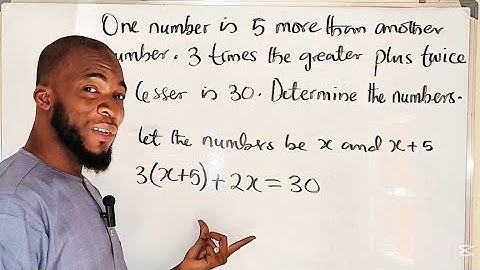 One number is 5 more than another
number. 3 times the greater plus twice
lesser is 30. Determine the numbers.
let the numbers be x and x+5
3(x+5)+2x=30